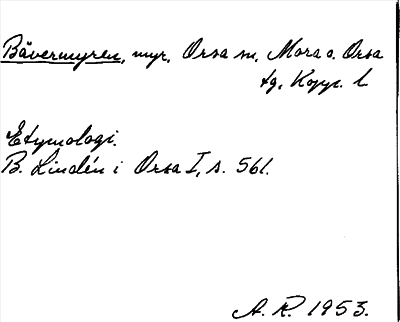 Bävermyren, myr, Orsa sn, Mora o. Orsa
tg, Kopp. l.
Etymologi.
B. Lindén i Orsa I, s. 561.
A. R. 1953.